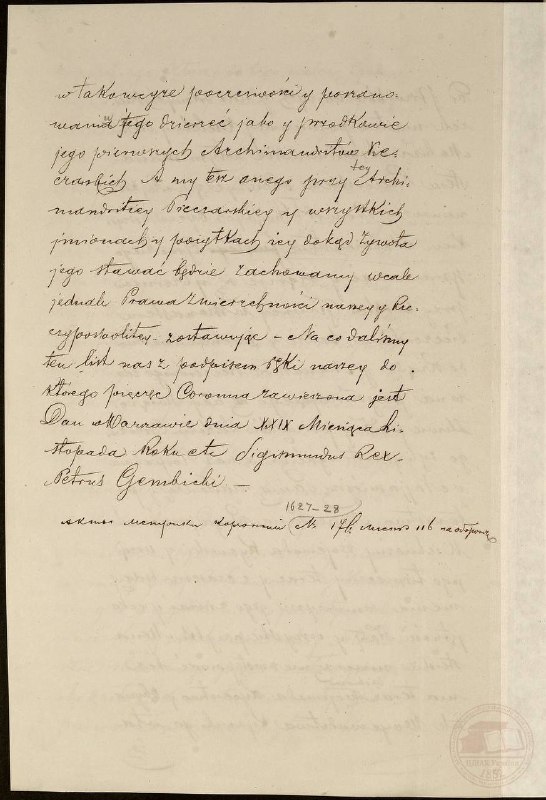 w takowejże poczciwości y poszano-
waniu jego dzierżeć jako y przodkowie
jego pierwszych Archimandrytow Pie-
czarskich A my też onego przy tey Archi-
mandritiey Pieczarskiey y wszystkich
jmionach y pożytkach iey dokąd żywota
jego stawać będzie zachowamy wcale
jednak Prawa Zwierzchności naszey y Rze-
czypospolitey zostawując – Na co daliśmy
ten list nasz z podpisem ręki naszey do
którego pieczęć Coronna zawieszona jest
Dan w Warszawie dnia XXIX Miesiąca Li-
stopada Roku etc Sigismundus Rex –
Petrus Gembicki –
1627–28
Актов Метрики Коронной № 176 листъ 116 на обороте